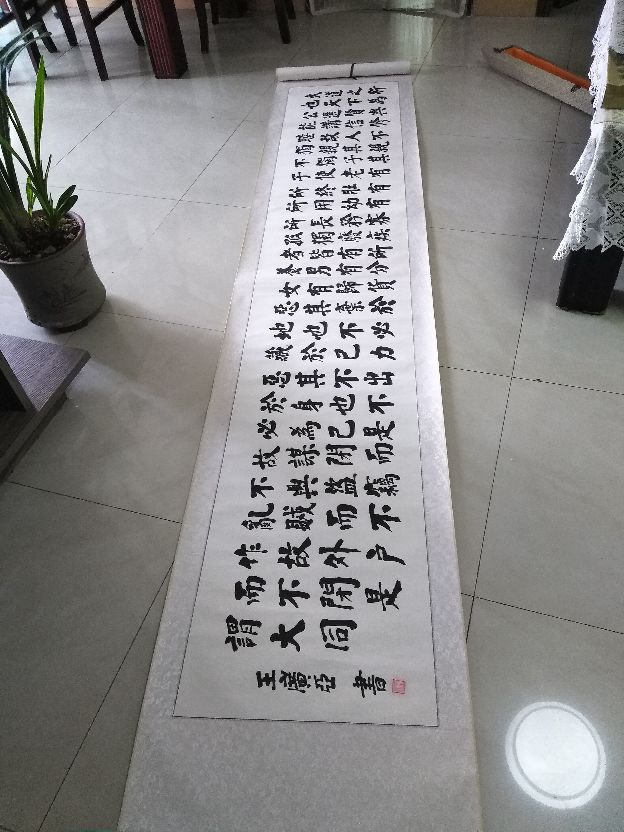 大道之行
也天下為
公選賢與
能講信修
睦故人不
獨親其親
不獨子其
子使老有
所終壯有
所用幼有
所長矜寡
孤獨廢疾
者皆有所
養男有分
女有歸貨
惡其棄於
地也不必
藏於己力
惡其不出
於身也不
必為己是
故謀閉而
不興盜竊
亂賊而不
作故外戶
而不閉是
謂大同
王廣亞 書